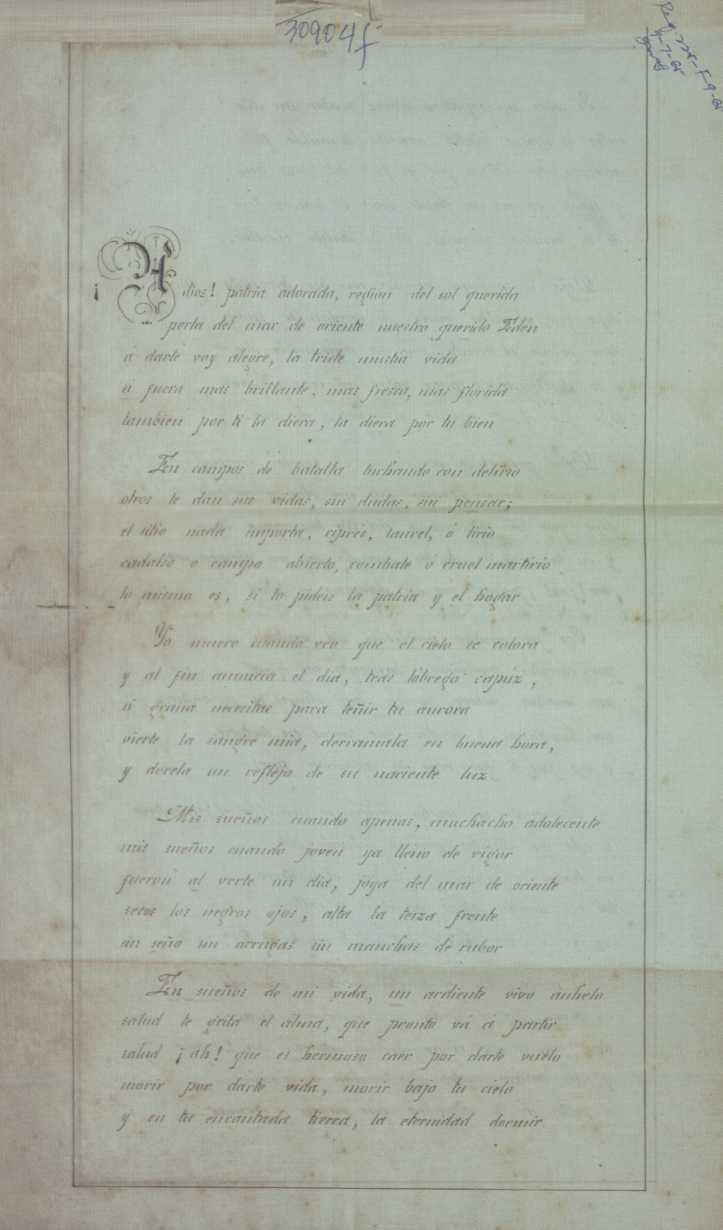 30904f
¡Adios! patria adorada, region del sol querida
perla del mar de oriente nuestro querido Edén
á darte voy alegre, la triste mustia vida
á fuera mas brillante, mas fresca, mas florida
tambien por tí la diera, la diera por tu bien
En campos de batalla luchando con delirio
otros te dan sus vidas, sin dudas, sin pensar;
el sitio nada importa, cipres, laurel, ó lirio
cadalso o campo abierto, combate ó cruel martirio
lo mismo es, si lo piden la patria y el hogar
Yo muero cuando veo que el cielo se colora
y al fin anuncia el día, tras lóbrego capúz,
si grana necesitas para teñir tu aurora
vierte la sangre mía, derramala en buena hora,
y dorela un reflejo de su naciente luz
Mis sueños cuando apenas, muchacho adolecente
mis sueños cuando joven ya lleno de vigor
fueron al verte un dia, joya del mar de oriente
secos los negros ojos, alta la terza frente
sin seño sin arrugas sin manchas de rubor
En sueños de mi vida, un ardiente vivo ánhelo
salud te grita el alma, que pronto vá á partir
salud ¡ah! que es hermoso caer por darte vuelo
morir por darte vida, morir bajo tu cielo
y en tu encantada tierra, la eternidad dormir